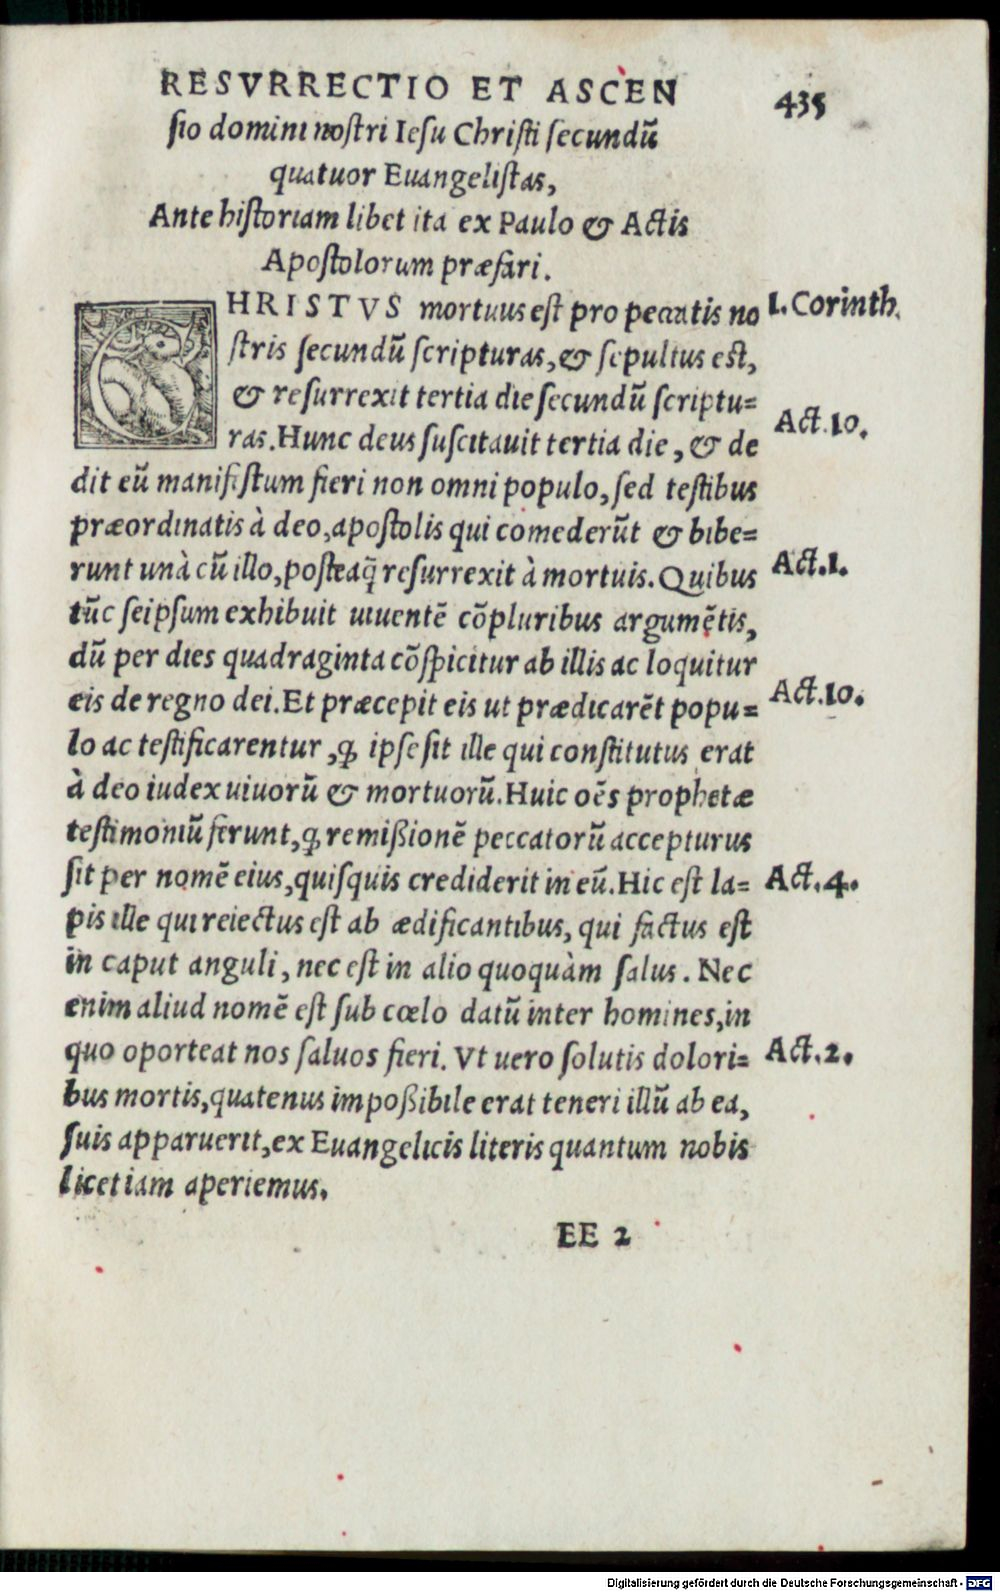 RESVRRECTIO ET ASCEN
435
sio domini nostri Iesu Christi secundũ
quatuor Euangelistas,
Ante historiam libet ita ex Paulo & Actis
Apostolorum præfari.
CHRISTVS mortuus est pro peccatis no
I. Corinth.
stris secundũ scripturas, & sepultus est,
& resurrexit tertia die secundũ scriptu=
ras. Hunc deus suscitauit tertia die, & de
Act. 10.
dit eũ manifestum fieri non omni populo, sed testibus
præordinatis à deo, apostolis qui comederũt & bibe=
runt unà cũ illo, posteaq̃ resurrexit à mortuis. Quibus
Act. 1.
tũc seipsum exhibuit uiuentẽ cõpluribus argumẽtis,
dũ per dies quadraginta cõspicitur ab illis ac loquitur
eis de regno dei. Et præcepit eis ut prædicarẽt popu=
Act. 10.
lo ac testificarentur, ꝙ ipse sit ille qui constitutus erat
à deo iudex uiuorũ & mortuorũ. Huic oẽs prophetæ
testimoniũ ferunt, ꝙ remißionẽ peccatorũ accepturus
sit per nomẽ eius, quisquis crediderit in eũ. Hic est la=
Act. 4.
pis ille qui reiectus est ab ædificantibus, qui factus est
in caput anguli, nec est in alio quoquàm salus. Nec
enim aliud nomẽ est sub cœlo datũ inter homines, in
quo oporteat nos saluos fieri. Vt uero solutis dolori=
Act. 2.
bus mortis, quatenus impoßibile erat teneri illũ ab ea,
suis apparuerit, ex Euangelicis literis quantum nobis
licet iam aperiemus.
EE 2
Digitalisierung gefördert durch die Deutsche Forschungsgemeinschaft - DFG